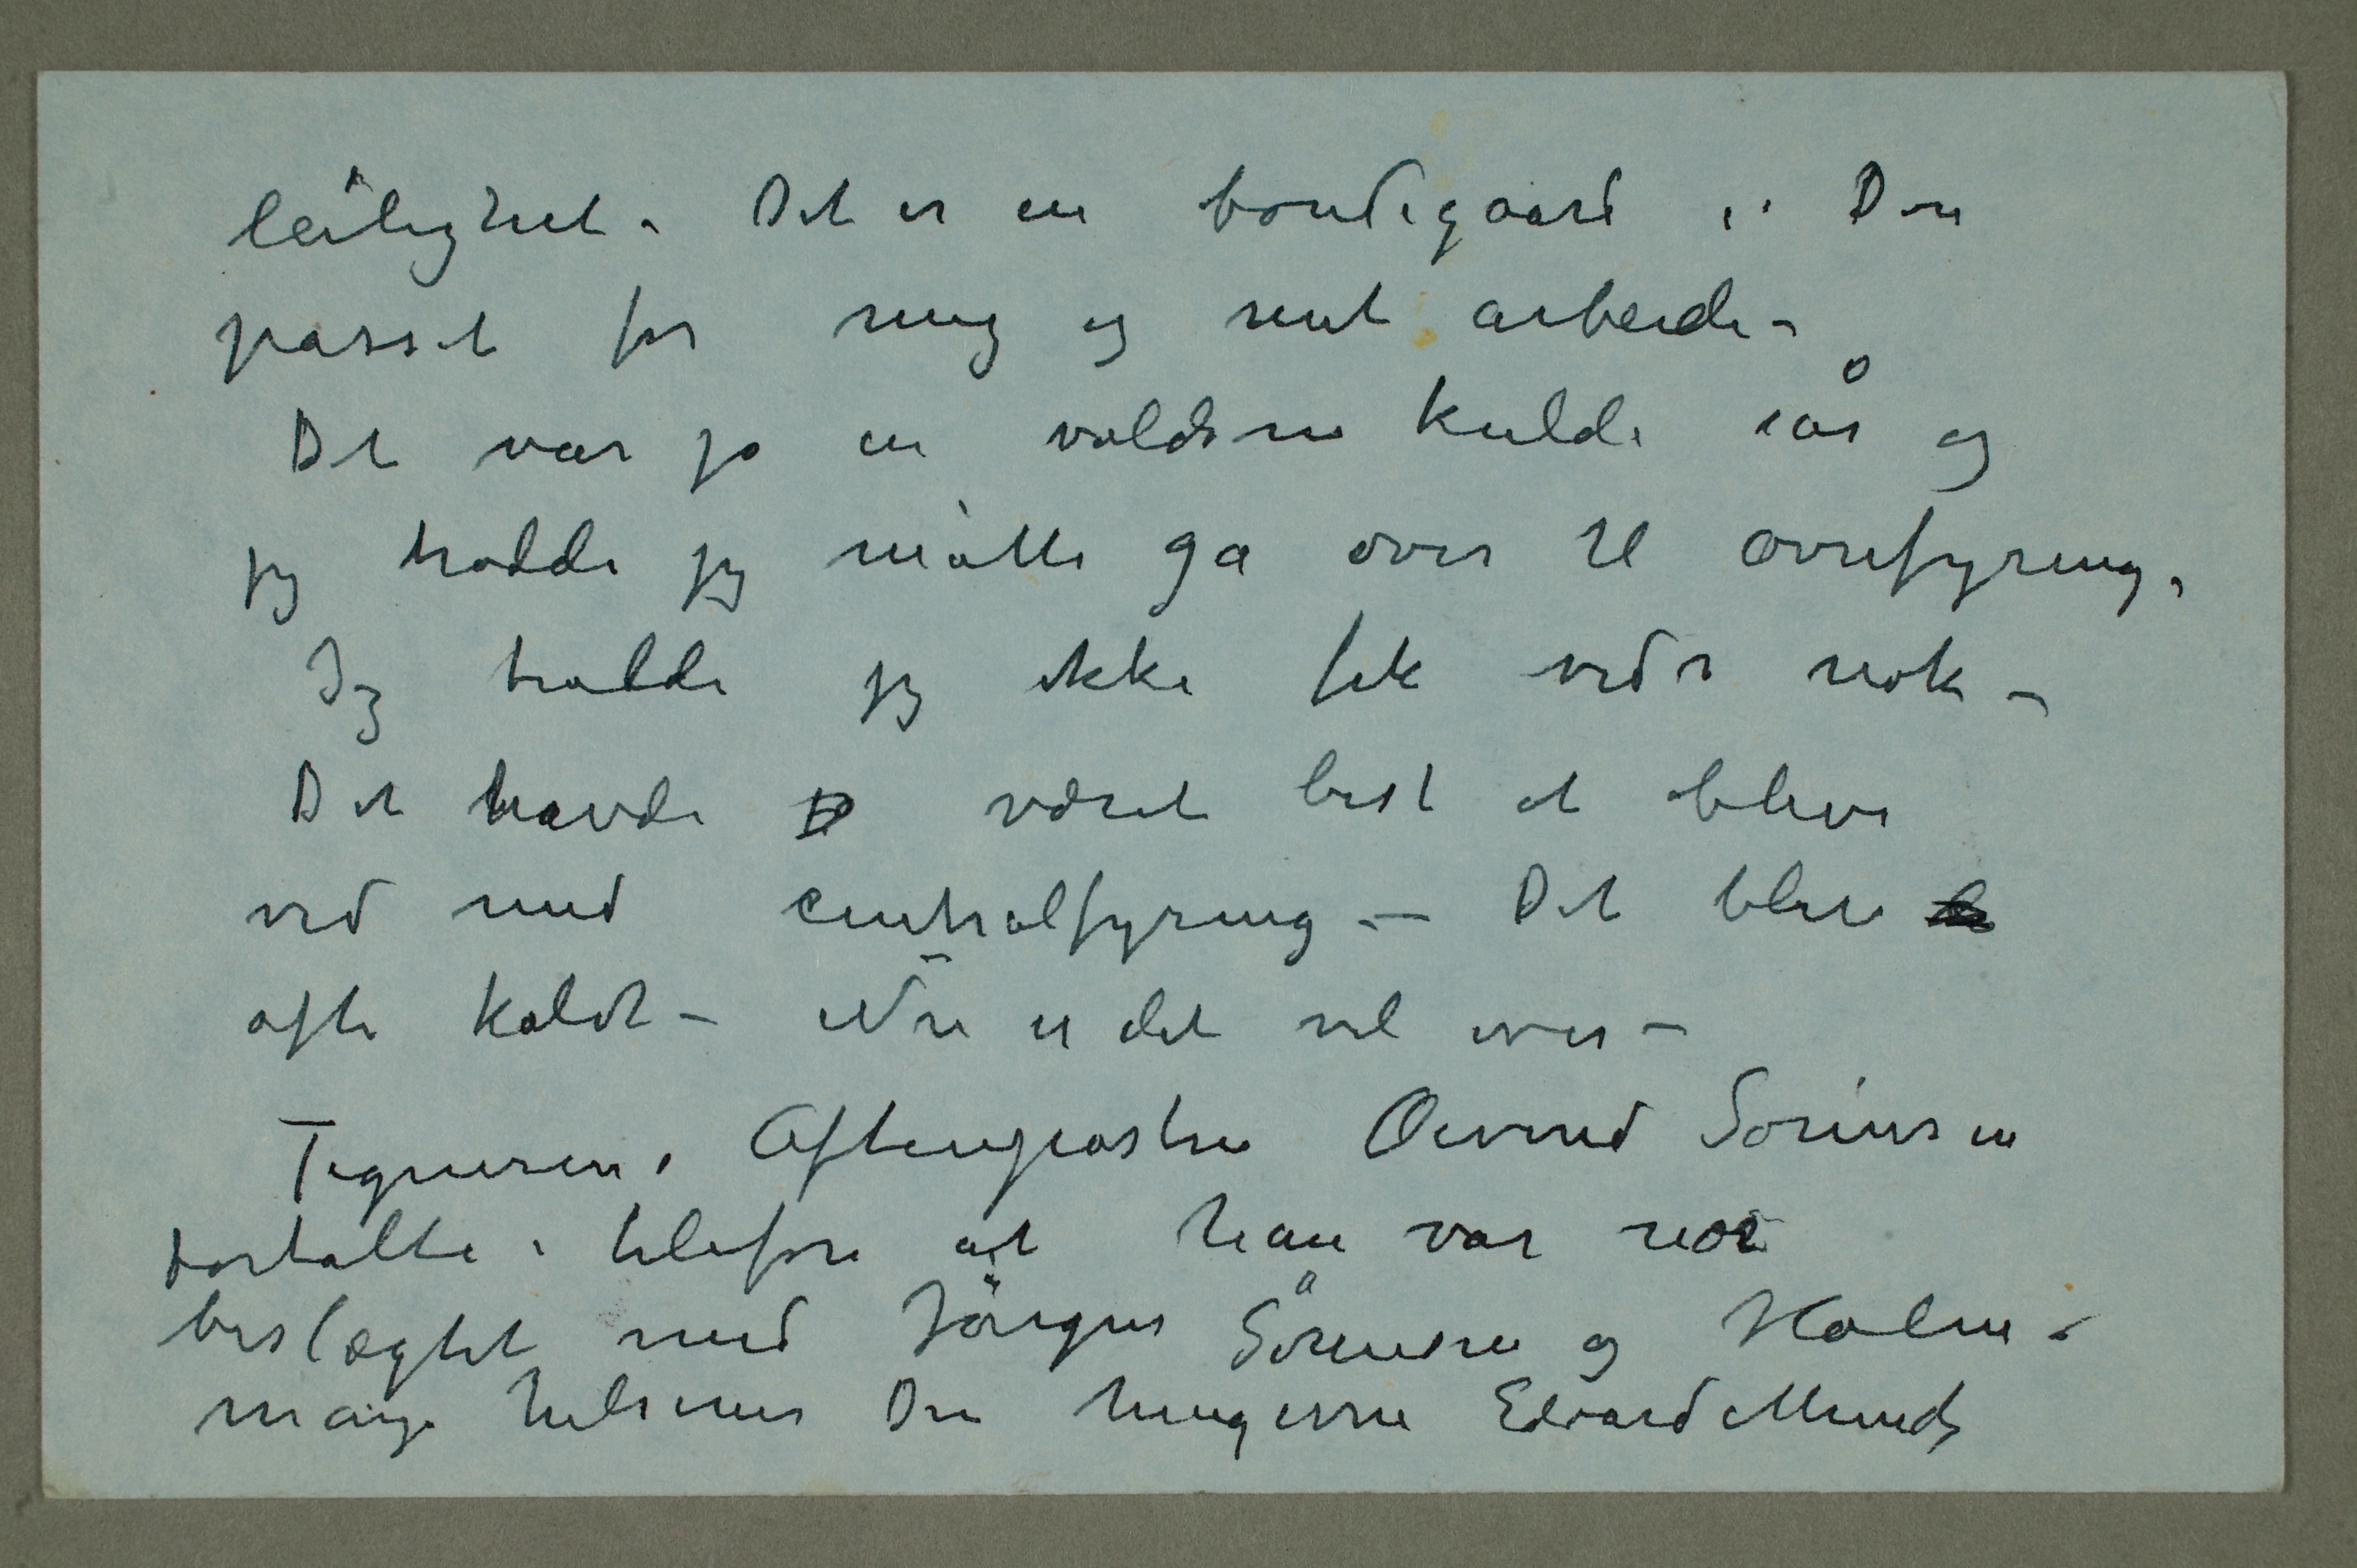 leilighet. Det er en bondegaard .. Den
passet for mig og mit arbeide –
Det var jo en voldsom kulde iår og
jeg trodde jeg måtte ga over til ovnsfyring.
Jeg trodde jeg ikke fik ved nok –
Det havde jo været best at blive
ved med centralfyring – Det blev
ofte koldt – Nu er det vel over –
Tegneren i Aftenposten Øivind Sørensen
fortalte i telefon at han var nær
beslægtet med Jörgen Sörensen og Holm.
mange hilsener Din hengivne Edvard Munch